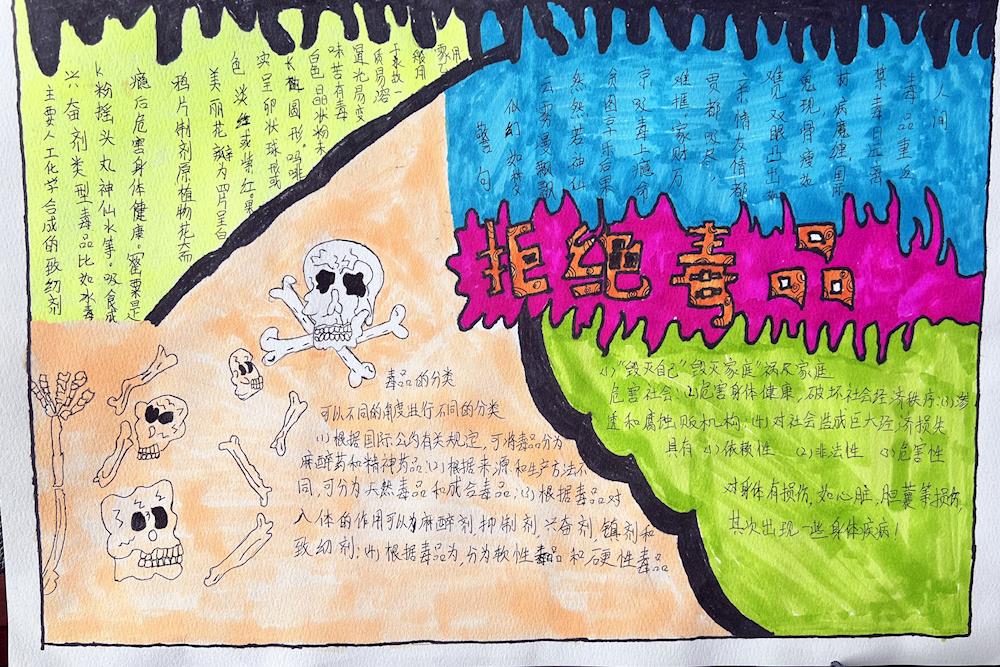 拒绝毒品
主要人工化学合成的致幻剂
兴奋剂类型毒品比如水毒
K粉摇头丸神仙水等。吸食成
瘾后危害身体健康。罂粟是
鸦片制剂原植物花大而
美丽花瓣为四片呈白
色淡红或紫红果
实呈卵状球形或
长椭圆形。吗啡
白色晶状粉末
味苦有毒
置光易变
质易溶
警句
似幻如梦
云雾漫飘飘
然然若神仙
贪图享乐后果
京吸毒上瘾命
难框,家财万
贯都吸吞,
亲情友情都
难见双眼凸出如
鬼现,骨瘦如
柴病魔缠,困
某毒日近离
毒品重返
人间
毒品的分类
可以不同的角度进行不同的分类
(1)根据国际公约有关规定,可将毒品分为
麻醉药和精神药品;(2)根据来源和生产方法不
同,可分为天然毒品和成合毒品;(3)根据毒品对
人体的作用可以为麻醉剂,抑制剂,兴奋剂,镇剂和
致幻剂;(4)根据毒品为,分为软性毒品和硬性毒品
(1)"毁灭自己""毁灭家庭"祸及家庭
危害社会:(2)危害身体健康,破坏社会经济秩序:(3)渗
透和腐蚀,贩机构;(4)对社会造成巨大经济损失
具有 (1)依赖性 (2)非法性 (3)危害性
对身体有损伤,如心脏,胆囊等损伤,
其次出现一些身体疾病!